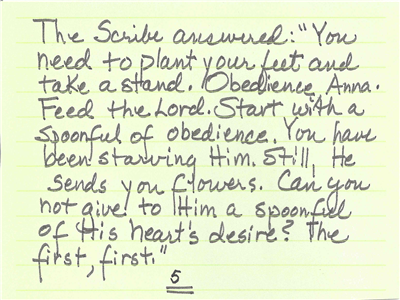 The Scribe answered: "You
need to plant your feet and
take a stand. Obedience, Anna.
Feed the Lord. Start with a
spoonful of obedience. You have
been starving Him. Still, He
sends you flowers. Can you
not give to Him a spoonful
of His heart's desire? The
first, first."
5